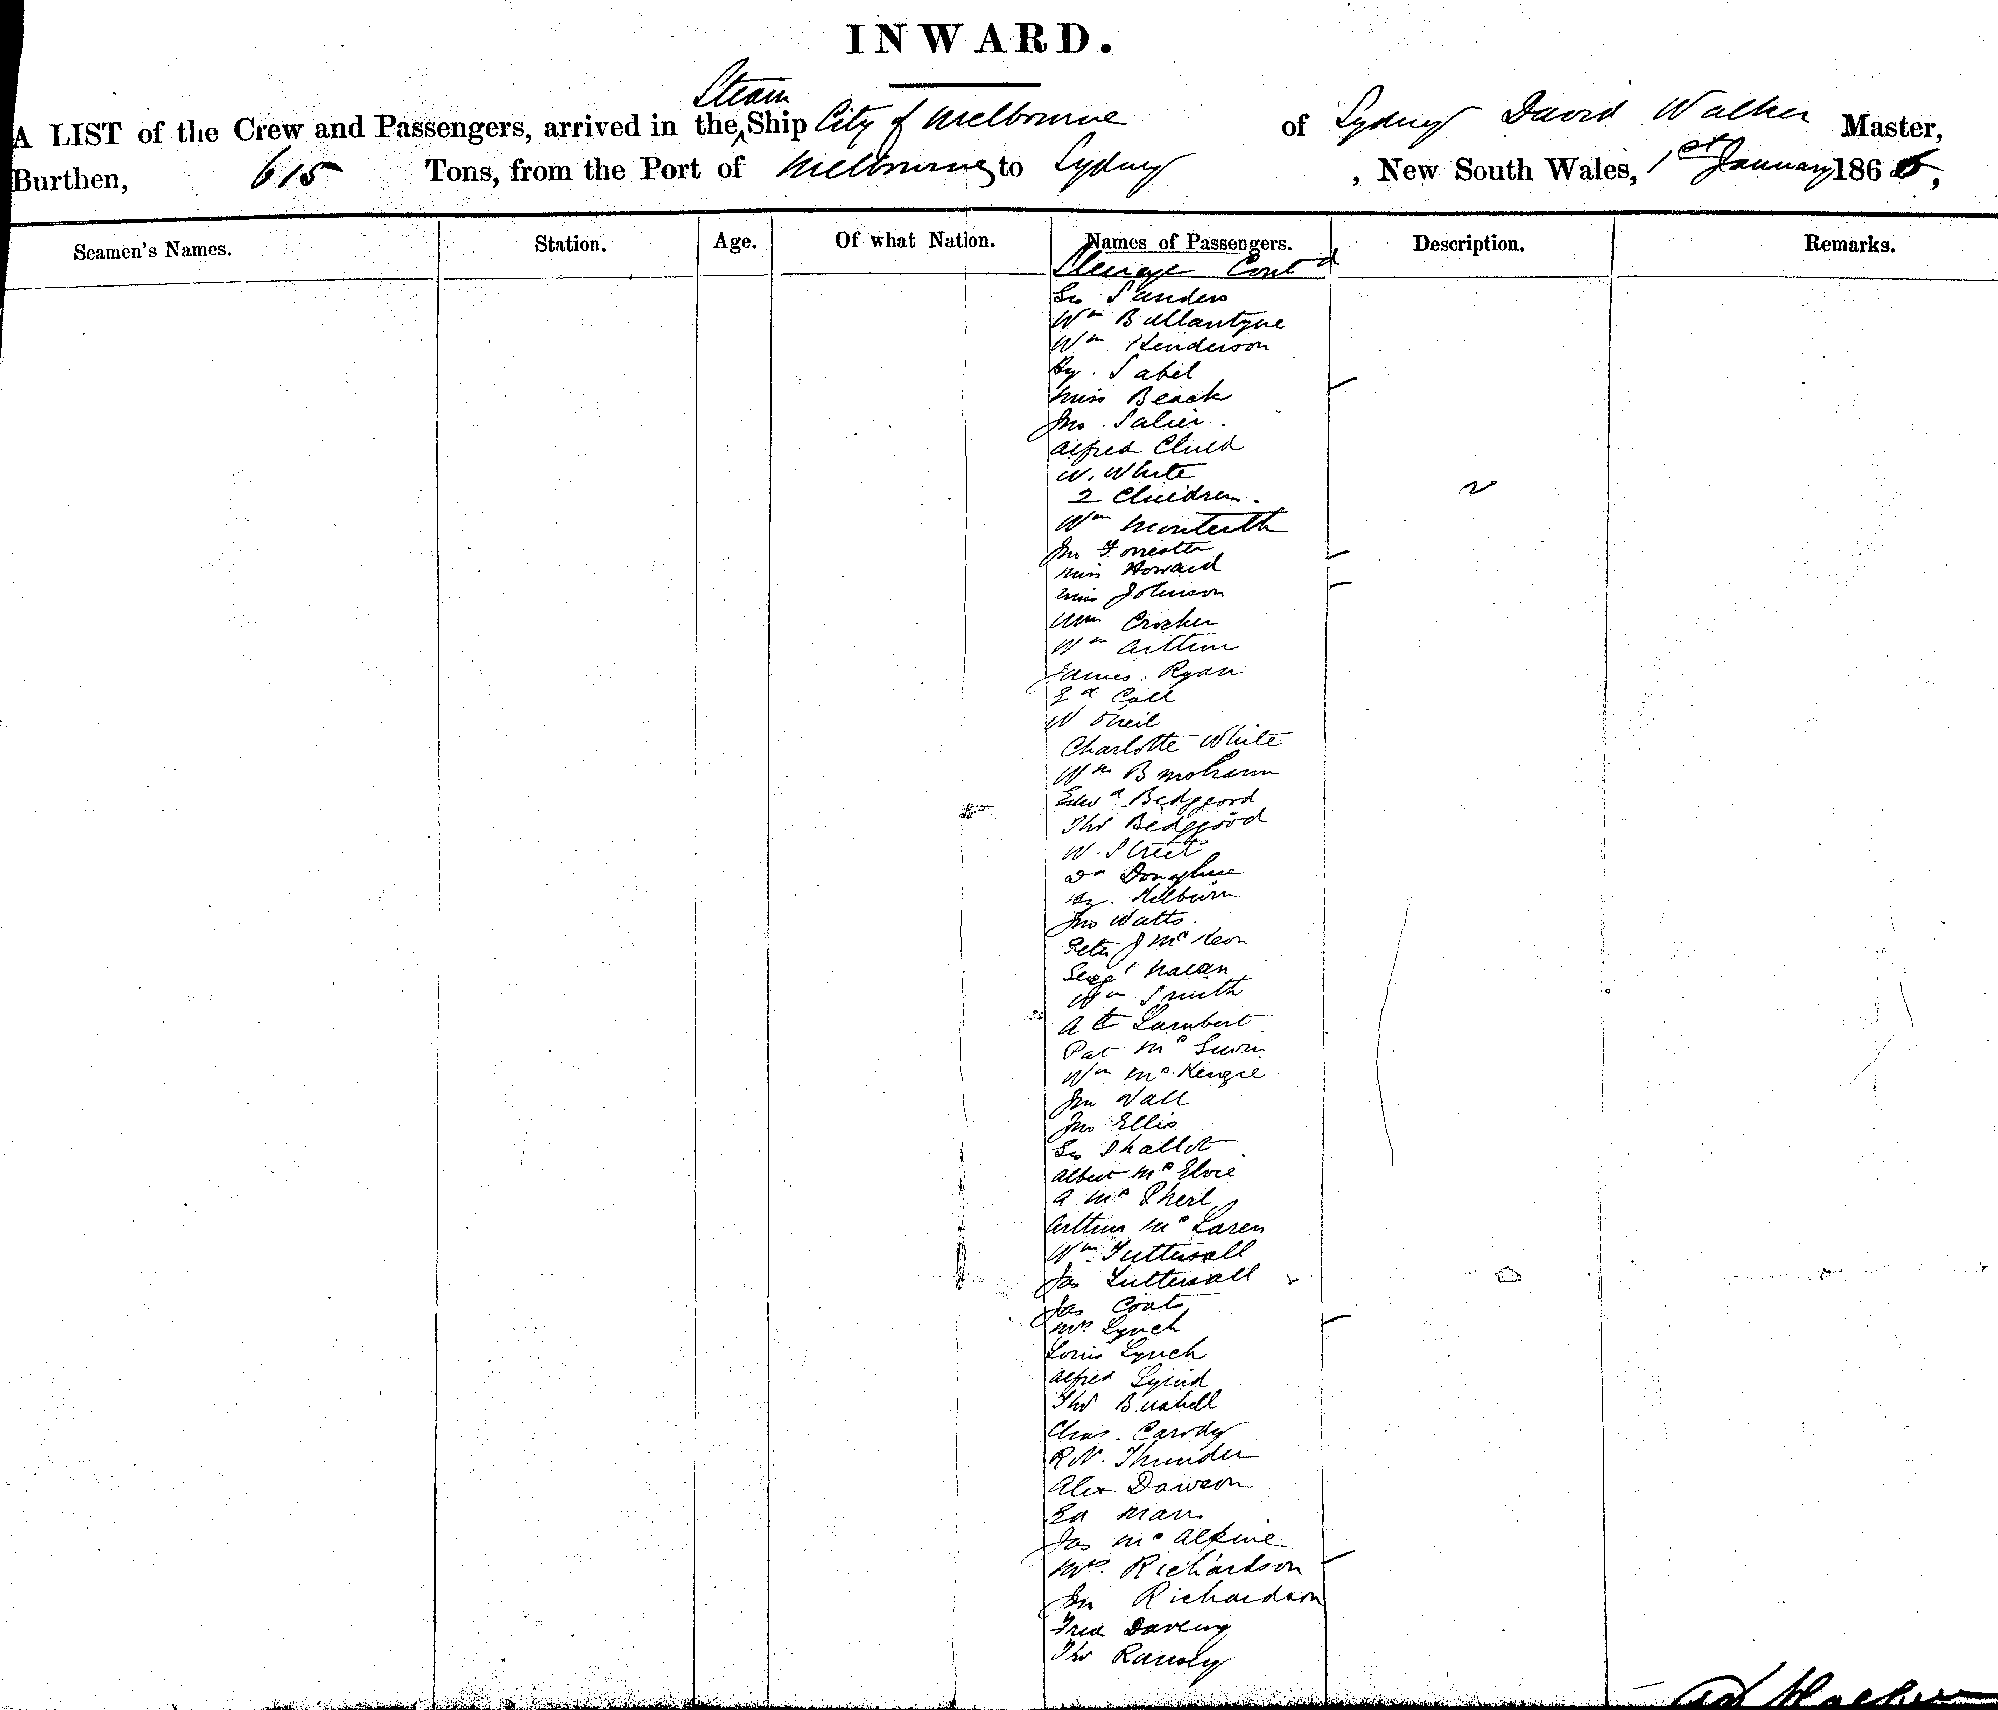 INWARD.
Steam
A LIST of the Crew and Passengers, arrived in the Ship City of Melbourne of Sydney David Walker Master,
Burthen, 615 Tons, from the Port of Melbourne to Sydney , New South Wales, 1st January 186
Seamen's Names. Station. Age. Of what Nation. Names of Passengers. Description. Remarks.
Steerage Contd
Geo Sanders
Wm Ballantyne
Wm Henderson
Hy. Sabel
Miss Beack
Jno. Salier.
Alfred Child
W. White
2 Children. 2
Wm Monteith
Jno Forrester
Miss Howard
Miss Johnson
Wm Crocker
Wm Arthur
James Ryan
Ed Call
W Oneil
Charlotte White
Wm
Edwd Bedggood
Thos Bedggood
W. Street
Dn Donaghue
Hy. Kilburn
Jno Watts.
Peter J McKeon
Wm Smith
A Lambert
Pat Mc
Wm McKenzie
Jno Wall
Jno Ellis
Geo Shallot
Albert Mc
A Mc
Arthur McLaren
Wm
Jas
Jas Coats
Mrs Lynch
Louis Lynch
Alfred
Thos Bushell
Chas. Carody
R N. Thunder
Alex Dawson
Ed
Jas McAlpine
Mrs. Richardson
Jno Richardson
Fred Daveny
Thos Ramsly